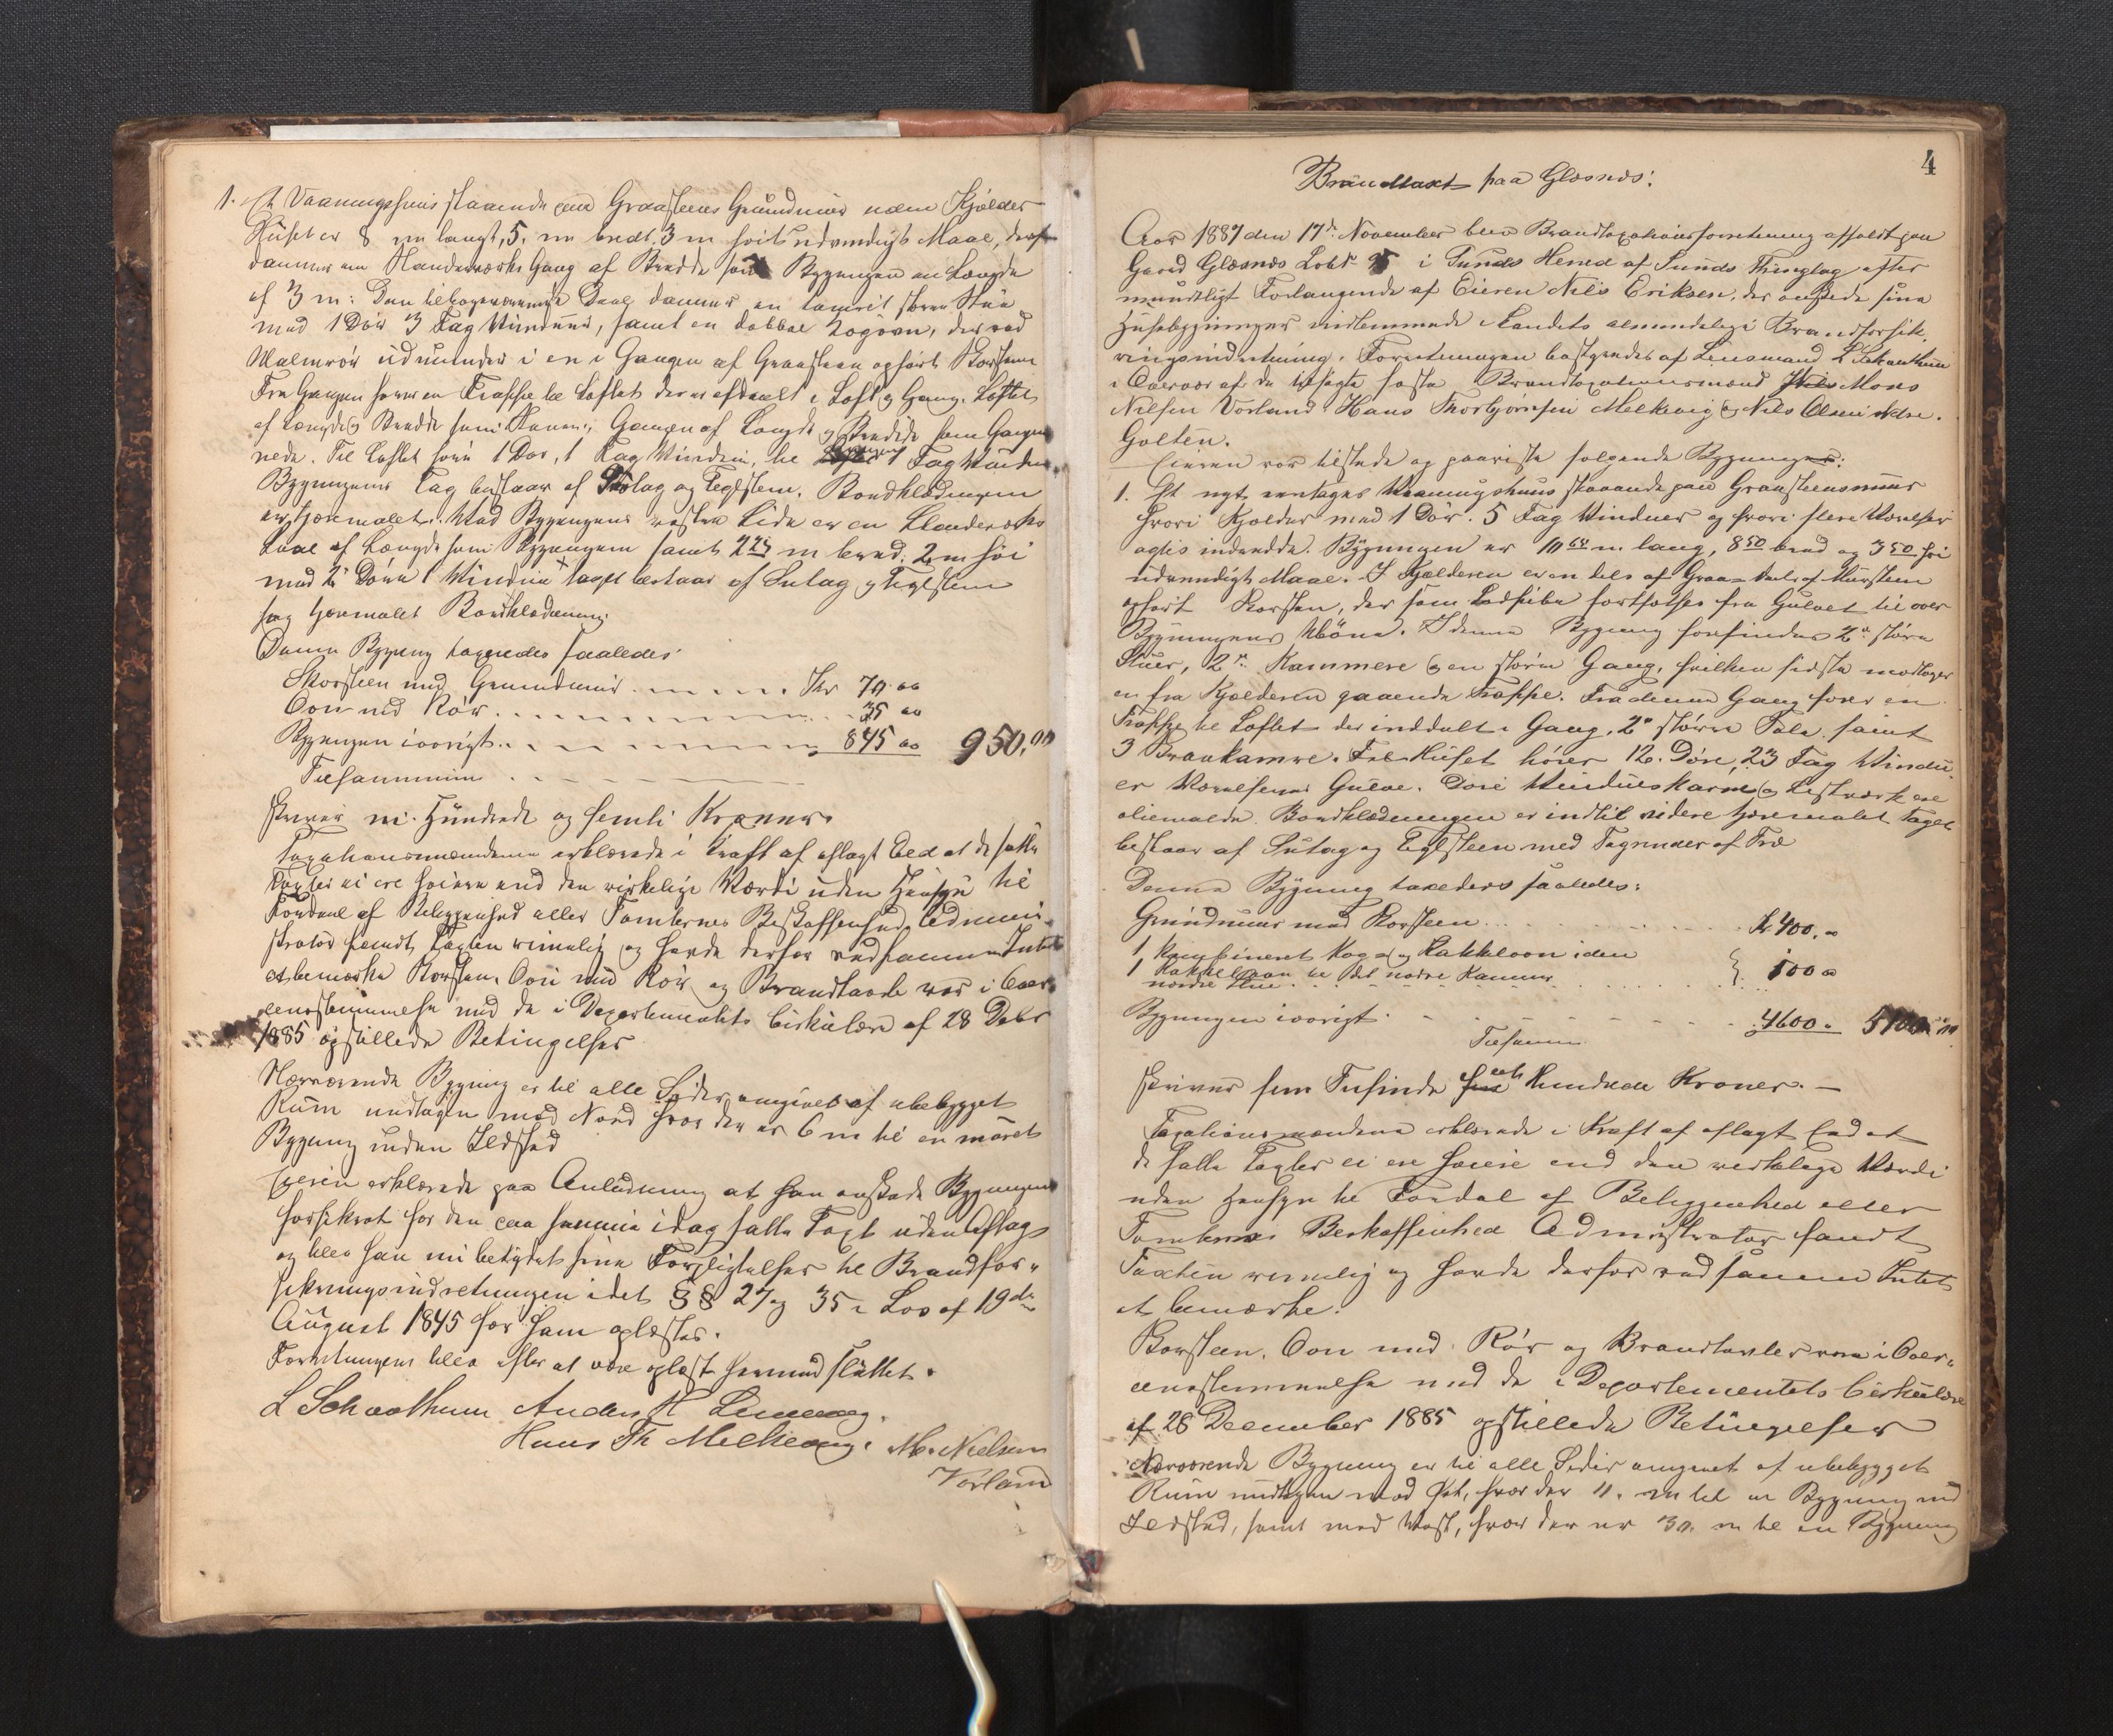 1. Et Vaaningshuus staaende paa Graasteens Grundmuur uden Kjelder
Huset er 8 m langt, 5, m bredt 3 m høit udvendigt Maal, deraf
dannes en Standerværks Gang af Bredde som Bygningen en Længde
af 3 m: Den tiloversværende Deel danner en tømret større Stue
med 1 Dør 3 Fag Vinduer, samt en dobbel Kogeovn, der ved
Malmrør udmunder i en i Gangen af Graasteen opført Skorsteen
Fra Gangen fører en Trappe til Loftet der er afdeelt i Loft og Gang. Loftet
af Længde og Bredde som Stuen, Gangen af Længde og Bredde som Gangen
nede. Til Loftet fører 1 Dør, 1 Fag Vindue, til 1 Fag Vindue
Bygningens Tag bestaar af Sutag og Teglsteen. Bordklædningen
er tjæremalet. Ved Bygningens vestre Side er en Standerværks
Sval af Længde som Bygningen samt 2 m bred, 2 m høi
med 2 Døre 1 Vindue taget bestaar af Sutag og Teglsteen
samt tjæremalet Bordklædning.
Denne Bygning taxeredes saaledes
Skorsteen med Grundmuur . . . . . . Kr 70 00
Ovn med Rør . . . . . . . . . 35 00
Bygningen iøvrigt . . . . . . . . 845 00 950,00
Tilsammen . . . . .
skriver ni Hundrede og femti Kroner.
Taxationsmændene erklærede i Kraft af aflagt Eed at de satte
Taxter ei ere høiere end den virkelige Værdi uden Hensyn til
Fordeel af Beliggenhed eller Tomternes Beskaffenhed. Admini-
strator fandt Taxten rimelig og havde derfor ved samme Intet
at bemærke Skorsteen, Ovn med Rør og Brandtavle var i Over-
eensstemmelse med de i Departementets Cirkulære af 28 Debr
1885 opstillede Betingelser
Nærværende Bygning er til alle Sider omgivet af ubebygget
Rum undtagen mod Nord hvor der er 6 m til en muret
Bygning uden Ildsted
Eieren erklærede paa Anledning at han ønskede Bygningen
forsikret for den paa samme idag satte Taxt uden Afslag
og blev han nu betydet sine Forpligtelser til Brandfor-
sikringsindretningen idet §§ 27 og 35 i Lov af 19de
August 1845 for ham oplæstes.
Forretningen blev efter at være oplæst hermed sluttet.
L Schaathun Anders H
Hans Th Melkevig. M. Nielsen
Vorland
4
Brandtaxt paa Glesnes:
Aar 1887 den 17de November blev Brandtaxationsforretning afholdt paa
Gaard Glesnes Løbe i Sunds Herred af Sunds Thinglag efter
mundtligt Forlangende af Eieren Nils Eriksen, der ønskede sine
Husebygninger indlemmede i Landets almindelige Brandforsik-
ringsindretning. Forretningen bestyredes af Lensmand L Schaathun
i Overvær af de tilsagte faste Brandtaxationsmænd Mons
Nilsen Vorland Hans Thorbjørnsen Melkevig og Nils Olsen Nedre
Golten.
Eieren var tilstede og paaviste følgende Bygninger:
1. Et nyt, eentages Vaaningshuus staaende paa Graasteensmuur
hvori Kjelder med 1 Dør. 5 Fag Vinduer og hvori flere Værelser
agtes indredde. Bygningen er 10 m. lang, 8 50 bred og 3 50 høi
udvendigt Maal. I Kjelderen er en dels af Graa- dels af Muursteen
opført Skorsteen, der som Ladpibe fortsættes fra Gulvet til over
Bygningens Møne. I denne Bygning forefindes 2 større
Stuer, 2 Kammere og en større Gang, hvilken sidste modtager
en fra Kjelderen gaaende Trappe. Fra denne Gang fører en
Trappe til Loftet der inddeelt i Gang, 2 større Sale samt
3 Kamre. Til Huset hører 12. Døre, 23 Fag Vinduer
er Værelsernes Gulve. Døre Vindueskarme og Listværk ere
oliemalede. Bordklædningen er indtil videre tjæremalet Taget
bestaar af Sutag og Teglsteen med Tagrender af Træ
Denne Bygning taxeredes saaledes:
Grundmuur med Skorsteen . . . . . . . Kr 400.00
1 kombineret Koge- og Kakkelovn i den
1 Kakkelovn til det nordre Kammer } 100 00
nordre Stue . . . . . . .
Bygningen iøvrigt . . . . . . . 4600. 5100.00
Tilsammen
skriver fem Tusinde eet Hundrede Kroner. —
Taxationsmændene erklærede i Kraft af aflagt Eed at
de satte Taxter ei ere høiere end den virkelige Værdi
uden Hensyn til Fordel af Beliggenhed eller
Tomternes Beskaffenhed Administrator fandt
Taxten rimelig og havde derfor ved samme Intet
at bemærke.
Skorsteen, Ovn med Rør og Brandtavler var i Over-
eensstemmelse med de i Departementets Cirkulære
af 28 December 1885 opstillede Betingelser
Nærværende Bygning er til alle Sider omgivet af ubebygget
Rum undtagen mod Øst, hvor der 11. m til en Bygning med
Ildsted, samt mod Vest, hvor der er 30. m til en Bygning